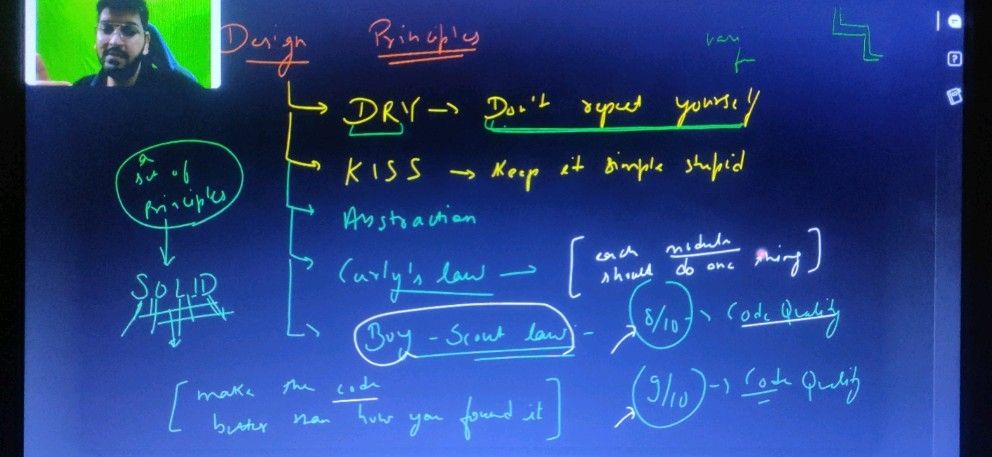 Design Principles
very
DRY → Don't repeat yourself
KISS → Keep it simple stupid
a
set of
Principles
SOLID
Abstraction
Curly's law → [each module
should do one thing]
Boy-Scout law - 8/10 → Code Quality
[make the code
better than how you found it]
9/10 → Code Quality